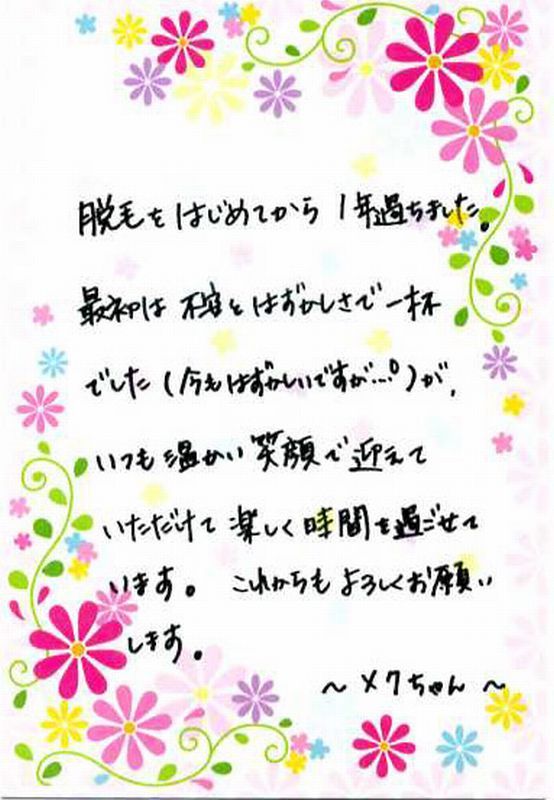 脱毛をはじめてから 1年過ちました。
最初は 不安と はずかしさで 一杯
でした (今もはずかしいですが…°)が、
いつも 温かい 笑顔で 迎えて
いただけて 楽しく 時間を 過ごせて
います。 これからも よろしくお願い
します。
～ メクちゃん ～